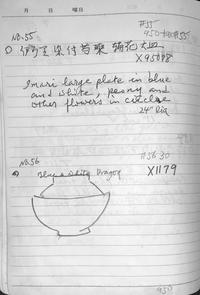 月 日 曜日
#55
NO.55
伊万里染付芍薬 菊花大皿
X95088
Imari large plate in blue
and white, peony and
other flowers in circle
24" Dia
NO.56
#5630
Blue & White Dragon
X1179
950